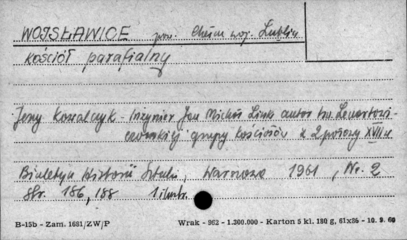 WOJSŁAWICE pow. Chełm woj. Lublin
kościół parafialny
Jerzy Kowalczyk - Inżynier Jan Michał Link autor tzw. Lewartow-
czowskiej grupy kościołów z 2 połowy XVII w
Biuletyn Historii Sztuki, Warszawa 1961, Nr. 2
Str. 186, 188 1 ilustr.
B-15b - Zam. 1681/ZW/P Wrak - 962 - 1.200.000 - Karton 5 kl. 180 g, 61x86 - 10. 9. 60